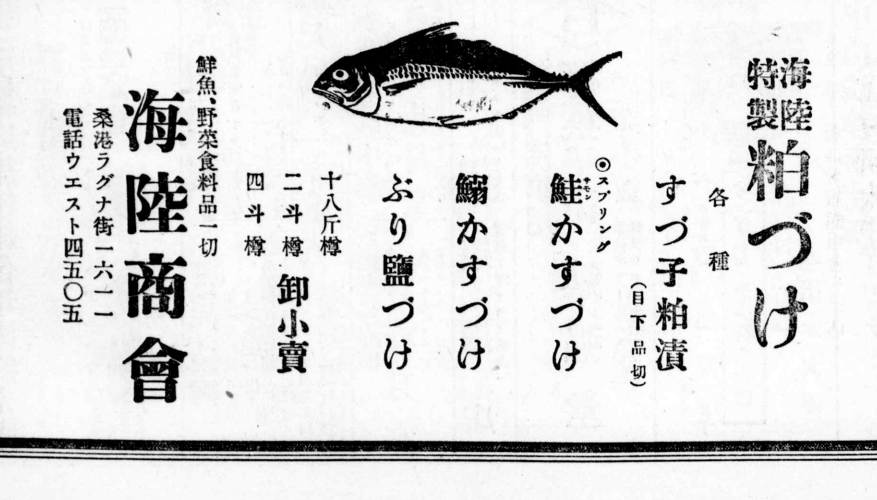 海陸特製粕づけ
各種
すづ子粕漬
(目下品切)
◎スプリング
鮭かすづけ
サモン
鰯かすづけ
ぶり鹽づけ
十八斤樽
二斗樽 卸小賣
四斗樽
鮮魚、野菜食料品一切
海陸商會
桑港ラグナ街一六一一
電話ウエスト四五〇五